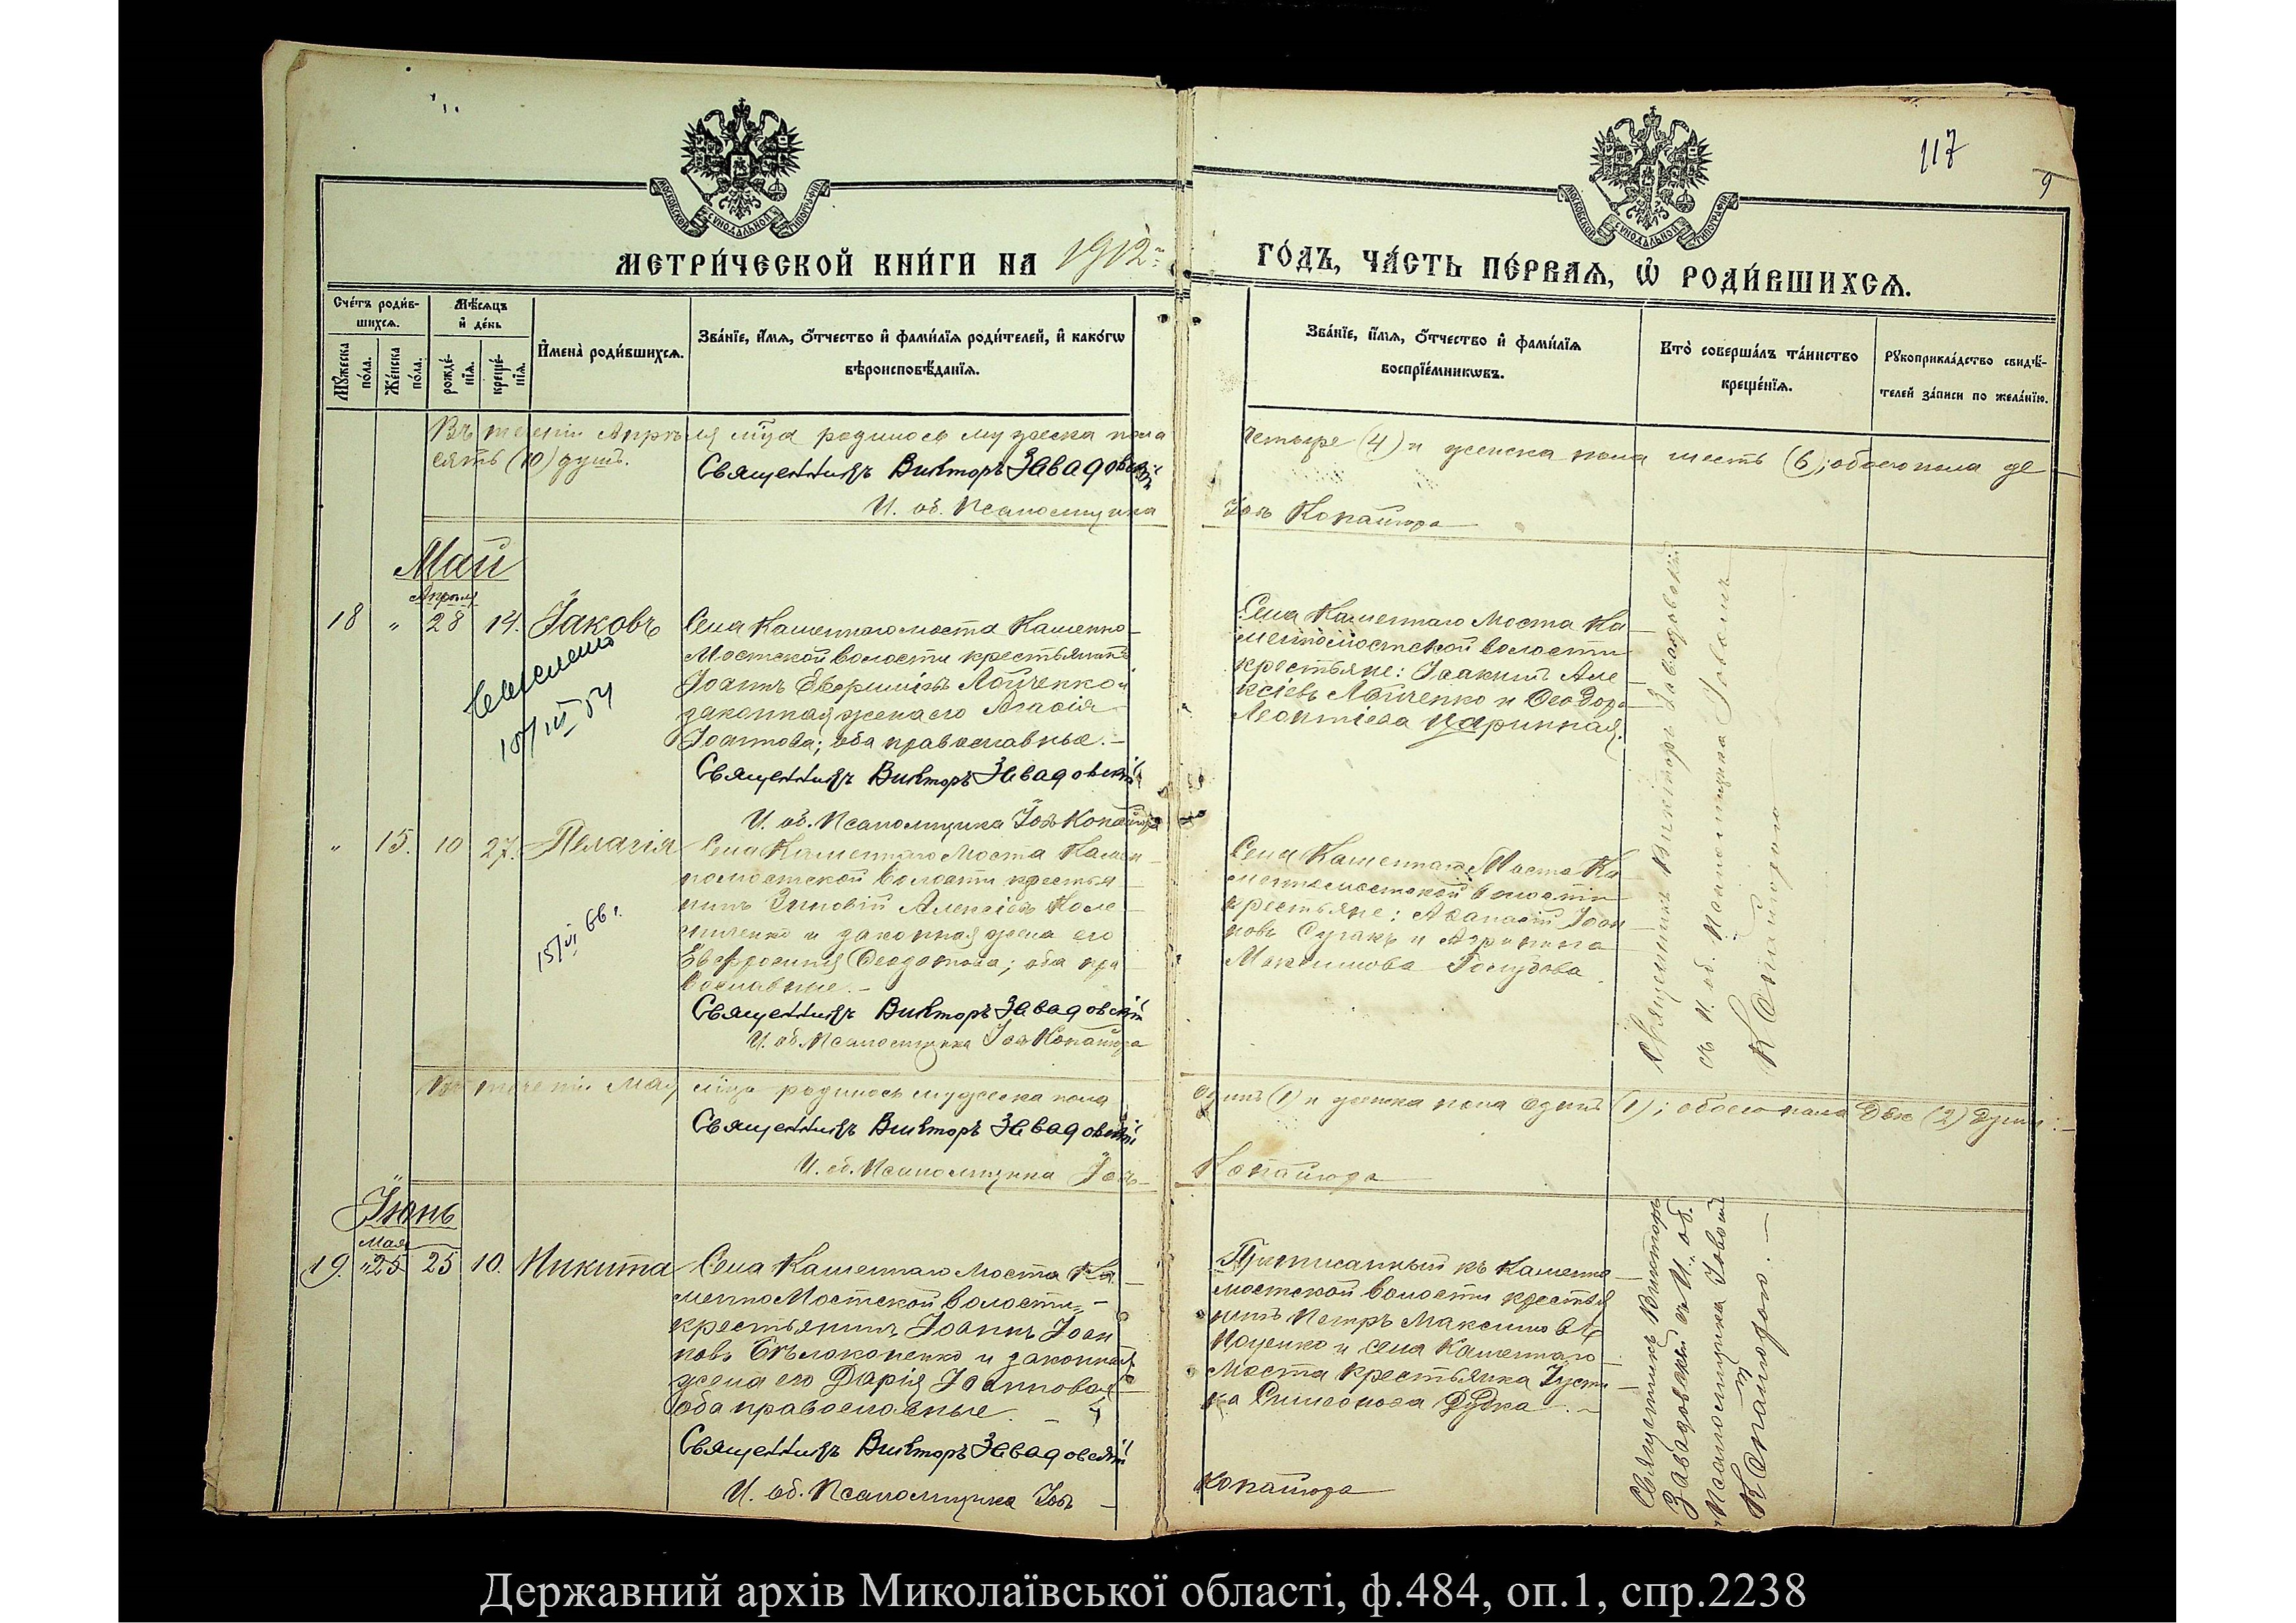 117
9
МОСКОВСКОЙ СѴНОДАЛЬНОЙ ТИПОГРАФІИ
МОСКОВСКОЙ СѴНОДАЛЬНОЙ ТИПОГРАФІИ
МЕТРИ́ЧЕСКОЙ КНИ́ГИ НА 1912
ГО́ДЪ, ЧА́СТЬ ПЕ́РВАЯ, Ѡ РОДИ́ВШИХСЯ.
Сче́тъ роди́в-
шихся.
Мꙋ́жеска
по́ла.
Же́нска
по́ла.
Мѣ́сяцъ
и де́нь
рожде́-
нїя.
креще́-
нїя.
И҆мена̀ роди́вшихся.
Зва́нїе, и҆́мя, о҆́тчество и҆ фами́лїя роди́телей, и҆ како́гѡ
вѣроисповѣ́данїя.
Зва́нїе, и҆́мя, о҆́тчество и҆ фами́лїя
воспрїе́мникѡвъ.
Кто̀ соверша́лъ та́инство
креще́нїя.
Рꙋкоприкла́дство свидѣ́-
телей за́писи по жела́нїю.
Въ теченіи Апрѣля мѣца родилось мужеска пола
четыре (4) и женска пола шесть (6); обоего пола де
сять (10) душъ.
Священникъ Викторъ Завадовскій
И. об. Псаломщика
Іовъ Копайгора
Май
Апрѣля
18 " 28 14. Іаковъ
Села Каменнаго моста Каменно-
Мостской волости крестьянинъ
Іоаннъ Лойченко и
законная жена его Агафія
Іоаннова; оба православные. —
Священникъ Викторъ Завадовскій
И. об. Псаломщика Іовъ Копайгора
Села Каменнаго Моста Ка
менномостской волости
крестьяне: Іоакимъ Але
ксіевъ Лойченко и Ѳеодора
Леонтіева Царинная.
Священникъ Викторъ Завадовскій
съ И. об. Псаломщика Іовомъ
Копайгорою
" 15. 10 27. Пелагія
15/VI 66 г.
Села Каменнаго Моста Камен-
номостской волости крестья
нинъ Зиновій Алексіевъ Коле
сниченко и законная жена его
Евфросинія Ѳеодотова; оба пра
вославные. —
Священникъ Викторъ Завадовскій
И. об. Псаломщика Іовъ Копайгора
Села Каменнаго Моста Ка
менномостской волости
крестьяне: Аѳанасій Іоан
новъ Сугакъ и Агрипина
Максимова Голубова.
Въ теченіи Мая мѣца родилось мужеска пола
одинъ (1) и женска пола одинъ (1); обоего пола двѣ (2) души. —
Священникъ Викторъ Завадовскій
И. об. Псаломщика Іовъ
Копайгора
Іюнь
Мая
19. "25 25 10. Никита
Села Каменнаго Моста Ка
менноМостской волости —
крестьянинъ Іоаннъ Іоан
новъ Бѣлоконенко и законная
жена его Дарія Іоаннова
оба православные. —
Священникъ Викторъ Завадовскій
И. об. Псаломщика Іовъ —
Приписанный къ Каменно
мостской волости крестья
нинъ Петръ Максимовъ
и села Каменнаго
Моста крестьянка Іусти
на Симеонова Дудка. —
Копайгора
Священникъ Викторъ
Завадовскій съ И. об.
Псаломщика Іовомъ
Копайгорою. —
Державний архів Миколаївської області, ф.484, оп.1, спр.2238